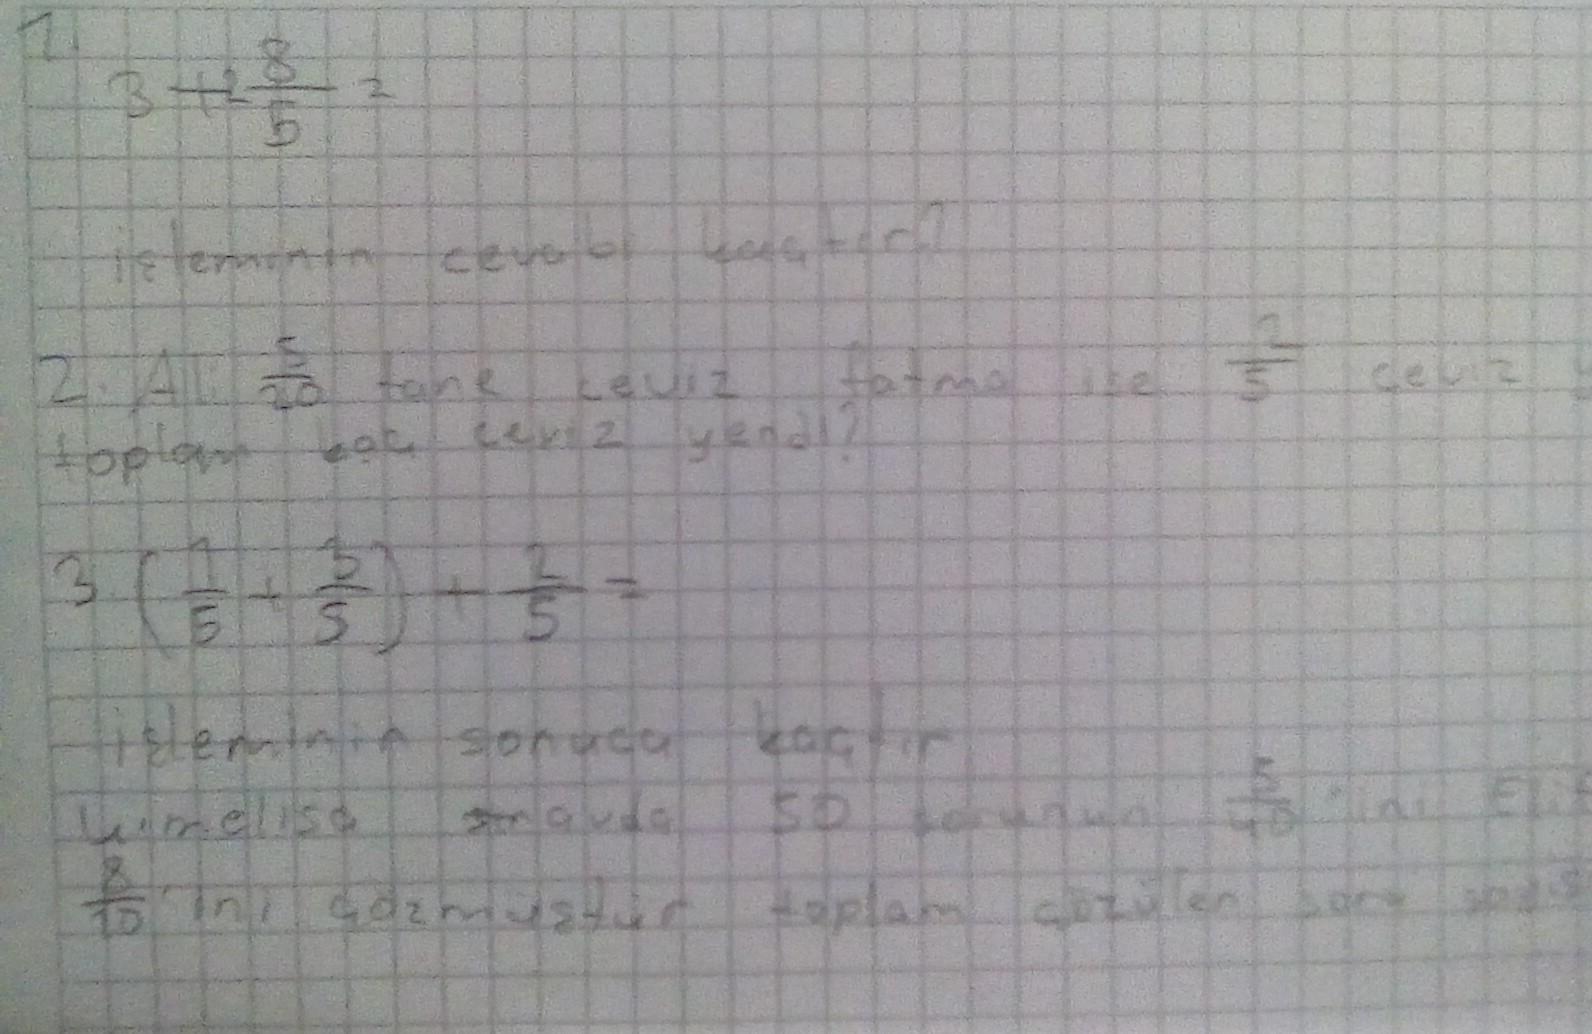 1.
3 + 2 8/5 =
işleminin cevabı kaçtır?
2. Ali 5/20 tane ceviz fatma ise 2/5 ceviz y
toplam kaç ceviz yendi?
3 (1/5 + 3/5) + 2/5 =
işleminin sonucu kaçtır
4. melisa sınavda 50 sorunun 5/40 'ini Elif
8/10 'ini çözmüştür toplam çözülen soru